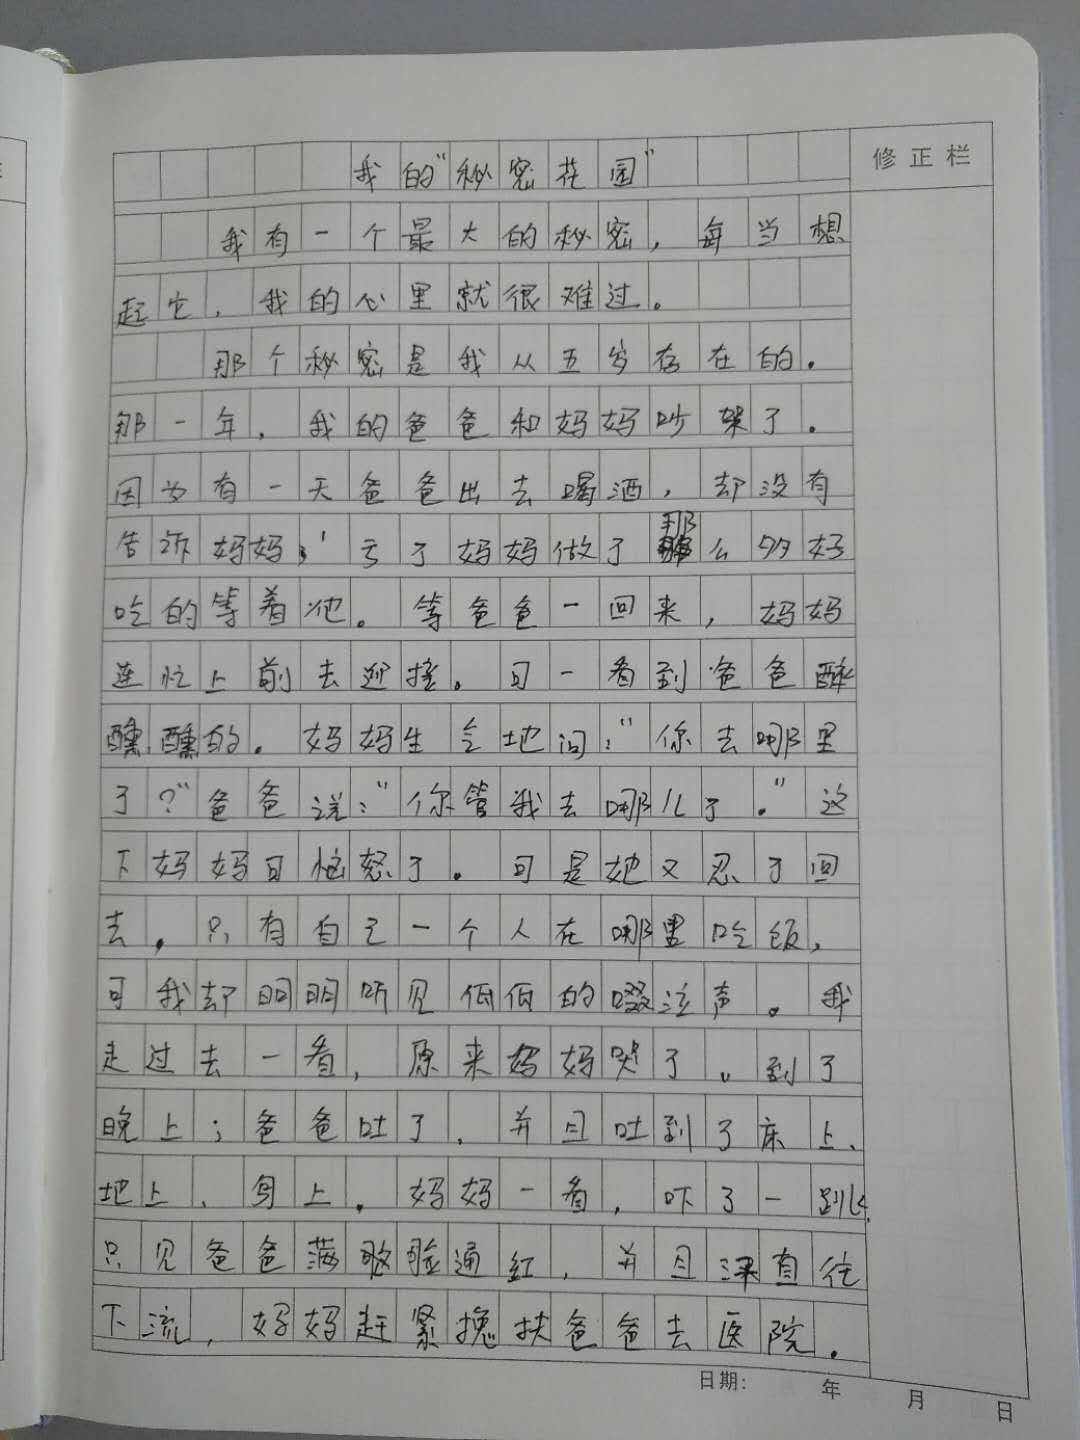 我的"秘密花园"
修正栏
我有一个最大的秘密，每当想
起它，我的心里就很难过。
那个秘密是我从五岁存在的。
那一年，我的爸爸和妈妈吵架了。
因为有一天爸爸出去喝酒，却没有
告诉妈妈，亏了妈妈做了那么多好
吃的等着他。等爸爸一回来，妈妈
连忙上前去迎接。可一看到爸爸醉
醺醺的。妈妈生气地问："你去哪里
了？"爸爸说："你管我去哪儿了。"这
下妈妈可恼怒了。可是她又忍了回
去。只有自己一个人在哪里吃饭，
可我却明明听见低低的啜泣声。我
走过去一看，原来妈妈哭了。到了
晚上；爸爸吐了，并且吐到了床上、
地上、身上。妈妈一看，吓了一跳。
只见爸爸满脸通红，并且直往
下流，妈妈赶紧搀扶爸爸去医院。
日期： 年 月 日